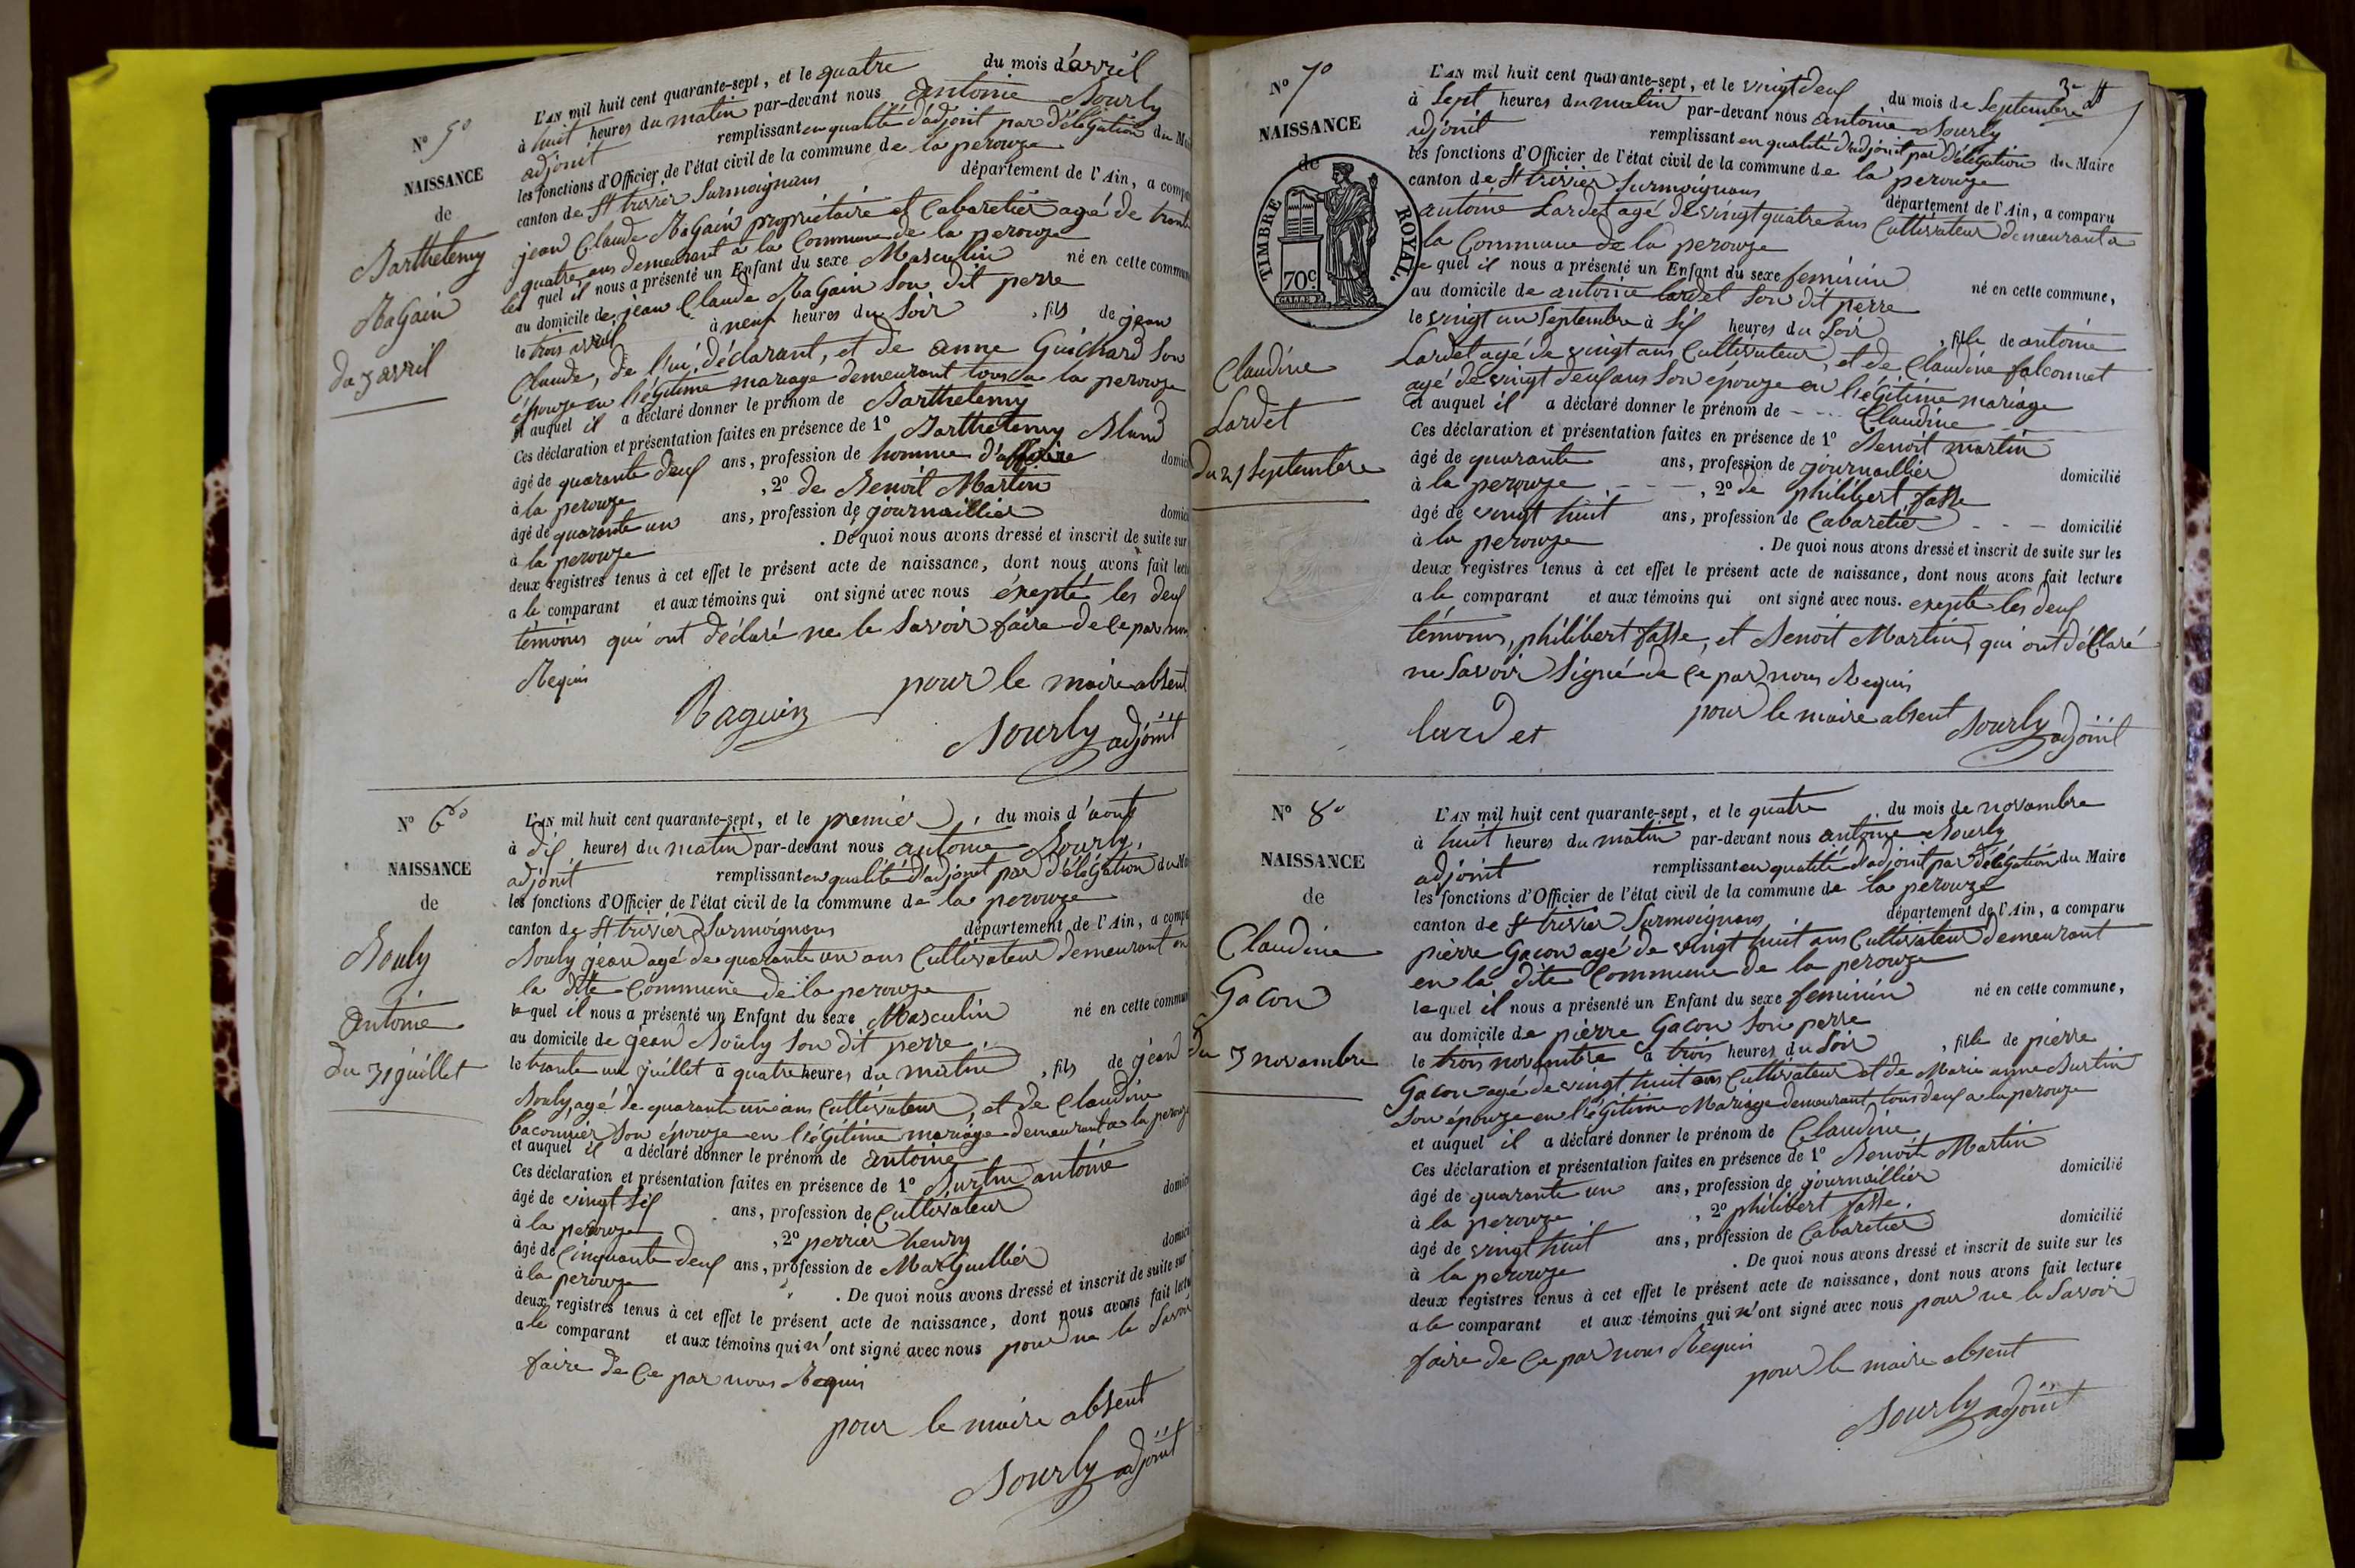 N° 5°
NAISSANCE
de
Barthelemy
Ragain
du 3 avril
L'AN mil huit cent quarante-sept, et le quatre du mois d'avril
à huit heures du matin par-devant nous antoine Sourly
adjoint remplissant en qualité d'adjoint par délégation du
les fonctions d'Officier de l'état civil de la commune de la perouze
canton de St trivier Surmoignans département de l'Ain, a
jean Claude Ragain propriétaire et Cabaretier agé de trente
quatre ans demeurant à la Commune de la perouze
le quel il nous a présenté un Enfant du sexe Masculin né en cette
au domicile de jean Claude Ragain Son dit perre
le trois avril à neuf heures du Soir , fils de jean
Claude, de lui déclarant, et de anne Guichard Son
épouze en l'égitime mariage demeurant tous a la perouze
et auquel il a déclaré donner le prénom de Barthelemy
Ces déclaration et présentation faites en présence de 1° Barthelemy Blund
âgé de quarante deuf ans, profession de homme d'affaire
à la perouze , 2° de Benoit Martin
âgé de quarante un ans, profession de journaillier
à la perouze . De quoi nous avons dressé et inscrit de suite sur
deux registres tenus à cet effet le présent acte de naissance, dont nous avons fait
a le comparant et aux témoins qui ont signé avec nous éxepté les deuf
témoins qui ont déclaré ne le Savoir faire de Ce par nous
Requis
Raguin pour le maire absent
Sourly adjoint
N° 6°
NAISSANCE
de
Bouly
antoine
du 31 juillet
L'AN mil huit cent quarante-sept, et le premier , du mois d'aout
à dif heures du matin par-devant nous antoine Sourly,
adjoint remplissant en qualité d'adjoint par délégation du
les fonctions d'Officier de l'état civil de la commune de la perouze
canton de St trivier Surmoignans département de l'Ain, a
Bouly jean agé de quarante un ans Cultivateur demeurant en
la dite Commune de la perouze
le quel il nous a présenté un Enfant du sexe Masculin né en cette
au domicile de jean Bouly Son dit perre
le trente un juillet à quatre heures du matin , fils de jean
Bouly, agé de quarante un ans Cultivateur, et de Claudine
baconnier Son épouze en l'égitime mariage demeurant a la perouze
et auquel il a déclaré donner le prénom de antoine
Ces déclaration et présentation faites en présence de 1° Burtin antoine
âgé de vingt Sif ans, profession de Cultivateur
à la perouze , 2° perrier henry
âgé de Cinquante deuf ans, profession de Marguillier
à la perouze . De quoi nous avons dressé et inscrit de suite sur
deux registres tenus à cet effet le présent acte de naissance, dont nous avons fait
a le comparant et aux témoins qui n'ont signé avec nous pour ne le Savoir
faire de Ce par nous Requis
pour le maire absent
Sourly adjoint
3e
N° 7°
NAISSANCE
de
TIMBRE ROYAL.
70c
Claudine
Lardet
du 21 Septembre
L'AN mil huit cent quarante-sept, et le vingt deuf du mois de Septembre
à Sept heures du matin par-devant nous antoine Sourly
adjoint remplissant en qualité d'adjoint par délégation du Maire
les fonctions d'Officier de l'état civil de la commune de la perouze
canton de St trivier Surmoignans département de l'Ain, a comparu
antoine Lardet agé de vingt quatre ans Cultivateur demeurant a
la Commune de la perouze
le quel il nous a présenté un Enfant du sexe feminin né en cette commune,
au domicile de antoine lardet Son dit perre
le vingt un Septembre à Sif heures du Soir , fille de antoine
Lardet agé de vingt ans Cultivateur, et de Claudine falconnet
agé de vingt deuf ans Son épouze en l'égitime mariage
et auquel il a déclaré donner le prénom de Claudine
Ces déclaration et présentation faites en présence de 1° Benoit martin
âgé de quarante ans, profession de journaillier domicilié
à la perouze , 2° de philibert fasse
âgé de vingt huit ans, profession de Cabaretier domicilié
à la perouze . De quoi nous avons dressé et inscrit de suite sur les
deux registres tenus à cet effet le présent acte de naissance, dont nous avons fait lecture
a le comparant et aux témoins qui ont signé avec nous. exepté les deuf
témoins, philibert fasse, et Benoit Martin, qui ont déClaré
ne Savoir Signé de Ce par nous Requis
lardet pour le maire absent Sourly adjoint
N° 8°
NAISSANCE
de
Claudine
Gacon
du 3 novembre
L'AN mil huit cent quarante-sept, et le quatre du mois de novembre
à huit heures du matin par-devant nous antoine Sourly
adjoint remplissant en qualité d'adjoint par délégation du Maire
les fonctions d'Officier de l'état civil de la commune de la perouze
canton de St trivier Surmoignans département de l'Ain, a comparu
pierre Gacon agé de vingt huit ans Cultivateur demeurant
en la dite Commune de la perouze
le quel il nous a présenté un Enfant du sexe feminin né en cette commune,
au domicile de pierre Gacon Son perre
le trois novembre à trois heures du Soir , fille de pierre
Gacon agé de vingt huit ans Cultivateur et de Marie anne Burtin
Son épouze en l'égitime Mariage demeurant tous deuf a la perouze
et auquel il a déclaré donner le prénom de Claudine
Ces déclaration et présentation faites en présence de 1° Benoit Martin
âgé de quarante un ans, profession de journaillier domicilié
à la perouze , 2° philibert fasse.
âgé de vingt huit ans, profession de Cabaretier domicilié
à la perouze . De quoi nous avons dressé et inscrit de suite sur les
deux registres tenus à cet effet le présent acte de naissance, dont nous avons fait lecture
a le comparant et aux témoins qui n'ont signé avec nous pour ne le Savoir
faire de Ce par nous Requis
pour le maire absent
Sourly adjoint